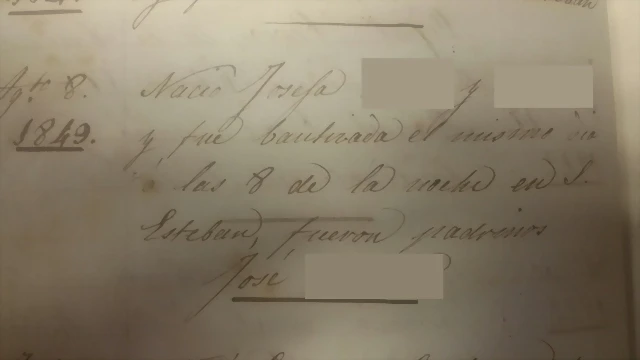 Agto 8. Nació Josefa y
1849. y fue bautizada el mismo dia
a las 8 de la noche en S.
Esteban, fueron padrinos
José